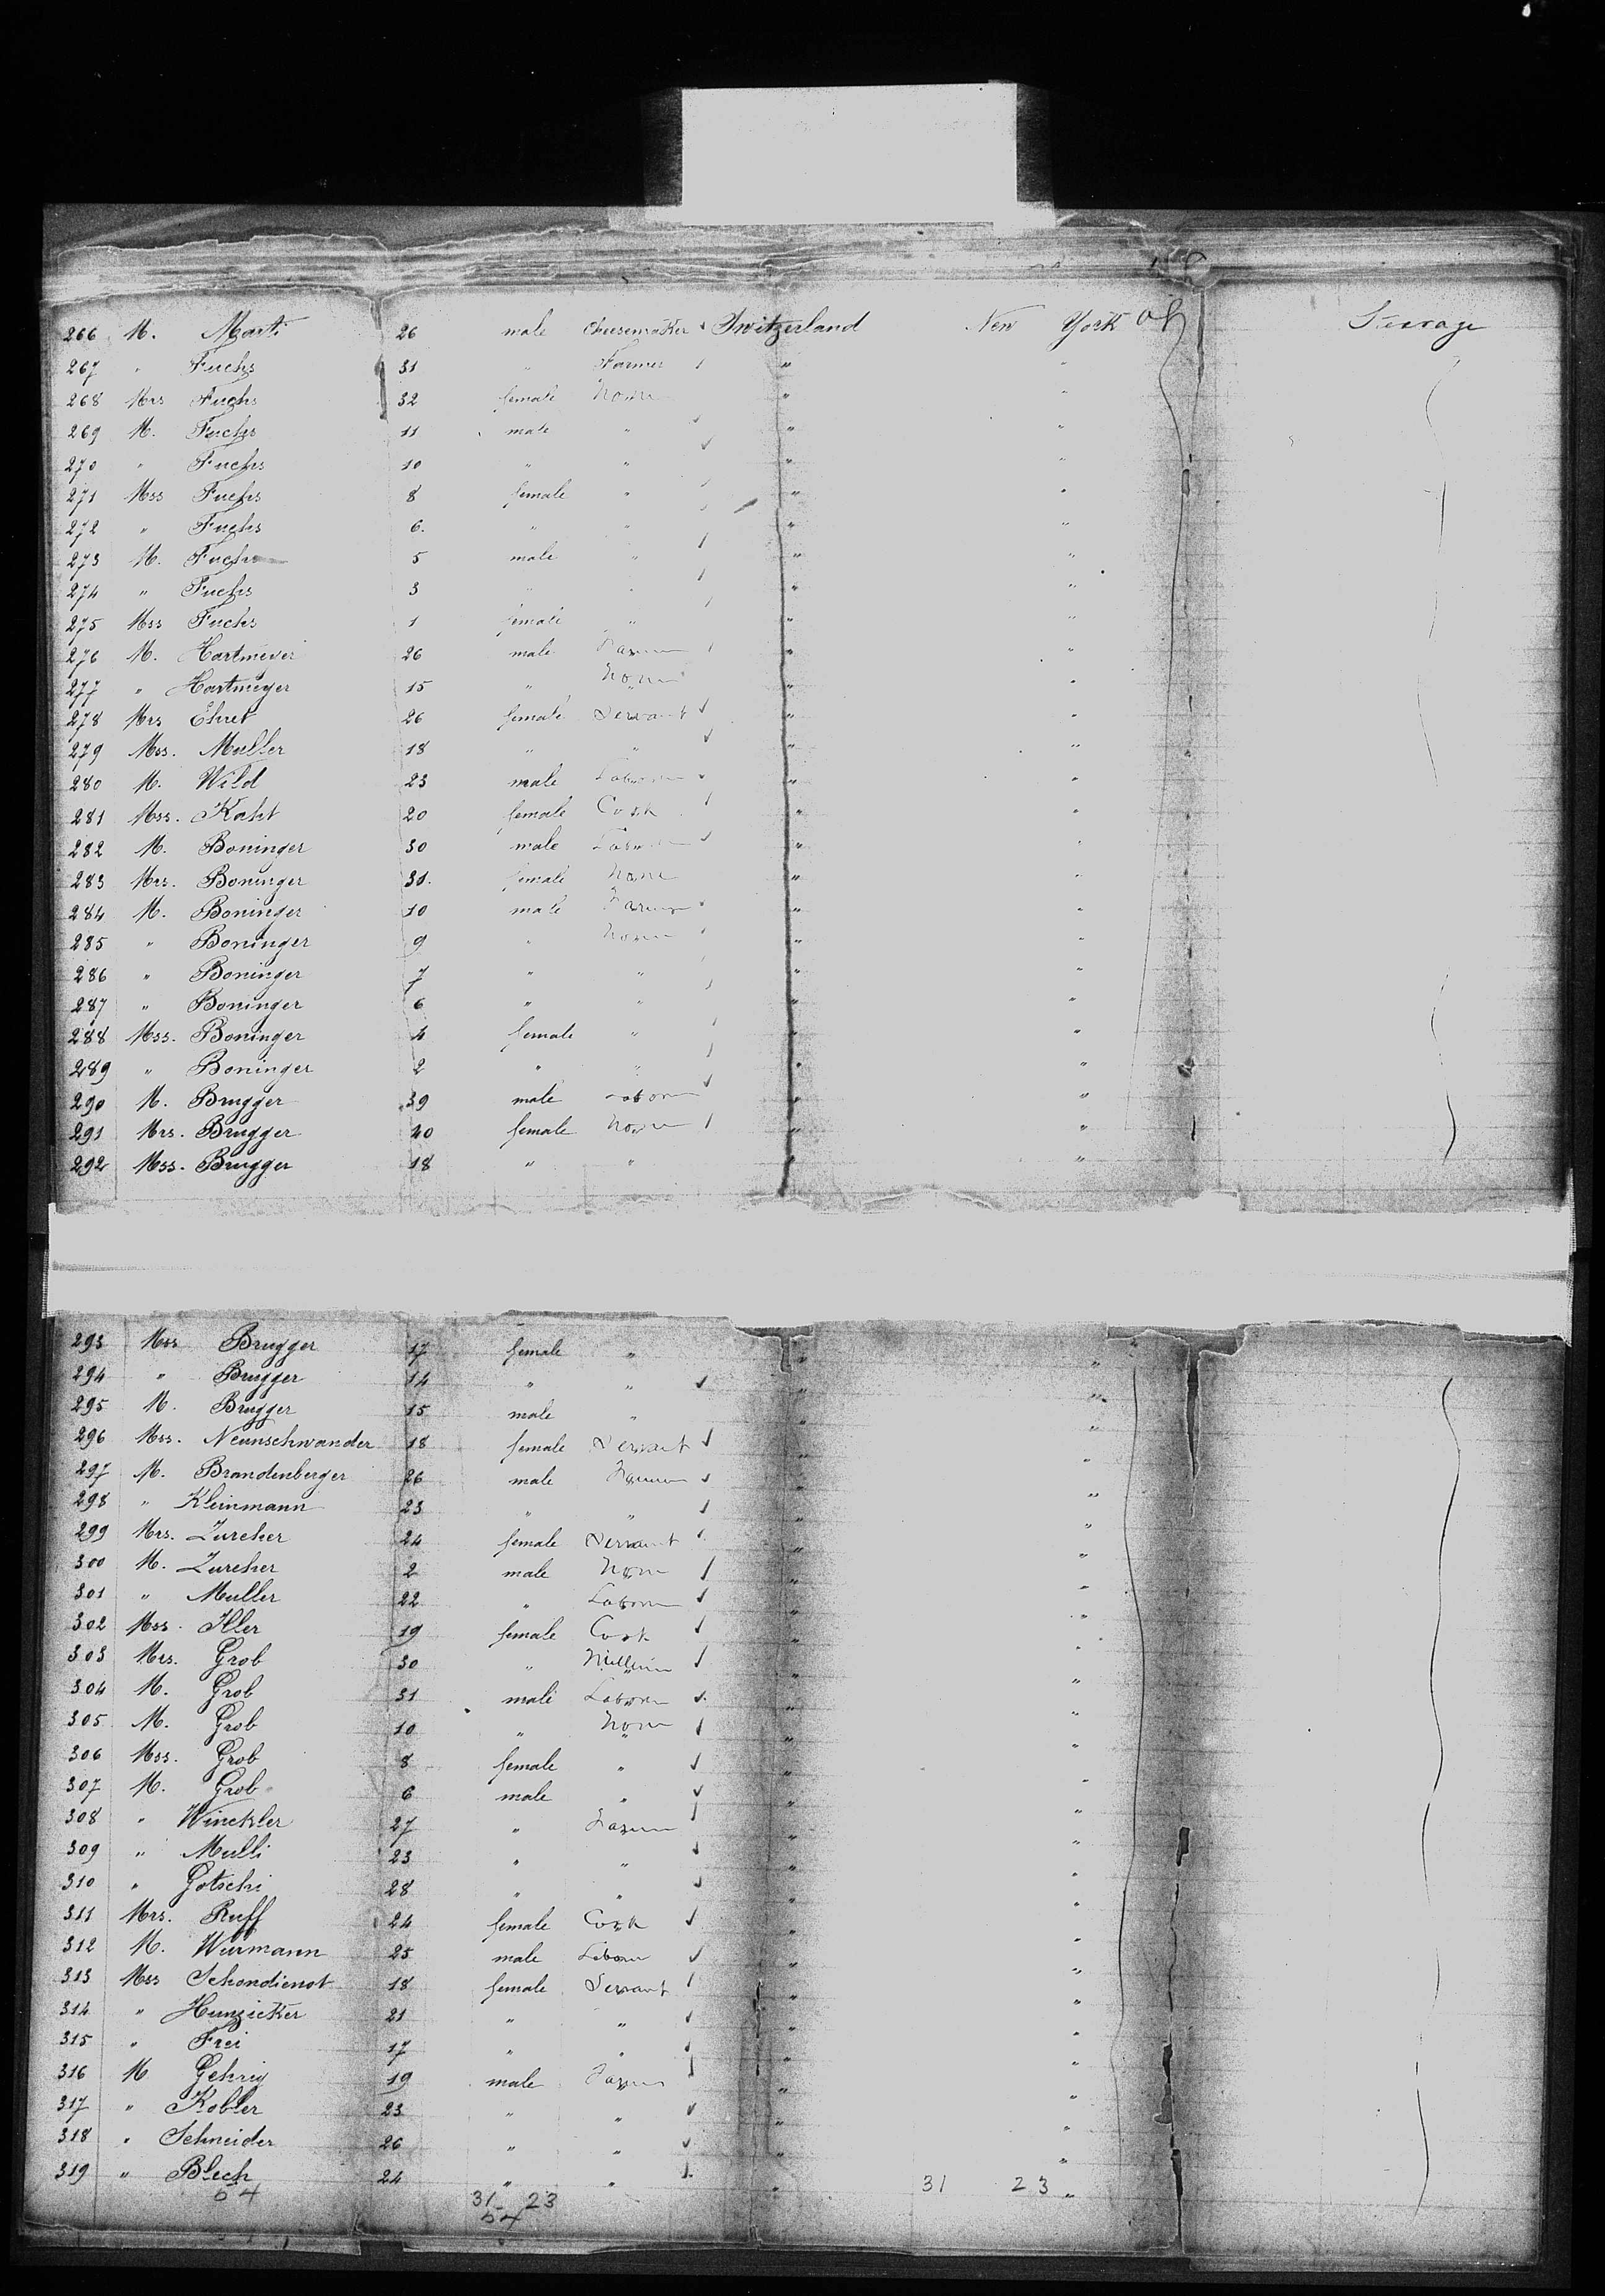 266 M. Marti 26 male Cheesemaker Switzerland New York Steerage
267 " Fuchs 31 " Farmer " "
268 Mrs Fuchs 32 female None " "
269 M. Fuchs 11 male " " "
270 " Fuchs 10 " " " "
271 Mss Fuchs 8 female " " "
272 " Fuchs 6. " " " "
273 M. Fuchs 5 male " " "
274 " Fuchs 3 " " " "
275 Mss Fuchs 1 female " " "
276 M. Hartmeyer 26 male Farmer " "
277 " Hartmeyer 15 " None " "
278 Mrs Ehret 26 female Servant " "
279 Mss. Muller 18 " " " "
280 M. Wild 23 male Laborer " "
281 Mss. Kaht 20 female Cook " "
282 M. Boninger 30 male Laborer " "
283 Mrs. Boninger 31. female None " "
284 M. Boninger 10 male Farmer " "
285 " Boninger 9 " None " "
286 " Boninger 7 " " " "
287 " Boninger 6 " " " "
288 Mss. Boninger 4 female " " "
289 " Boninger 2 " " " "
290 M. Brugger 39 male Laborer " "
291 Mrs. Brugger 40 female None " "
292 Mss. Brugger 18 " " " "
293 Mss Brugger 17 female " " "
294 " Brugger 14 " " " "
295 M. Brugger 15 male " " "
296 Mss. Neunschwander 18 female Servant " "
297 M. Brandenberger 26 male Farmer " "
298 " Kleinmann 23 " " " "
299 Mrs. Zurcher 24 female Servant " "
300 M. Zurcher 2 male None " "
301 " Muller 22 " Laborer " "
302 Mss. Iller 19 female Cook " "
303 Mrs. Grob 30 " " "
304 M. Grob 31 male Laborer " "
305 M. Grob 10 " None " "
306 Mss. Grob 8 female " " "
307 M. Grob 6 male " " "
308 " Winckler 27 " Farmer " "
309 " Mulli 23 " " " "
310 " Gotschi 28 " " " "
311 Mrs. Ruff 24 female Cook " "
312 M. Wurmann 25 male Laborer " "
313 Mss Schondienst 18 female Servant " "
314 " Hunzicker 21 " " " "
315 " Frei 17 " " " "
316 M Gehrig 19 male Farmer " "
317 " Kobler 23 " " " "
318 " Schneider 26 " " " "
319 " Blech 24 " " " "
54 31 23 31 23
54